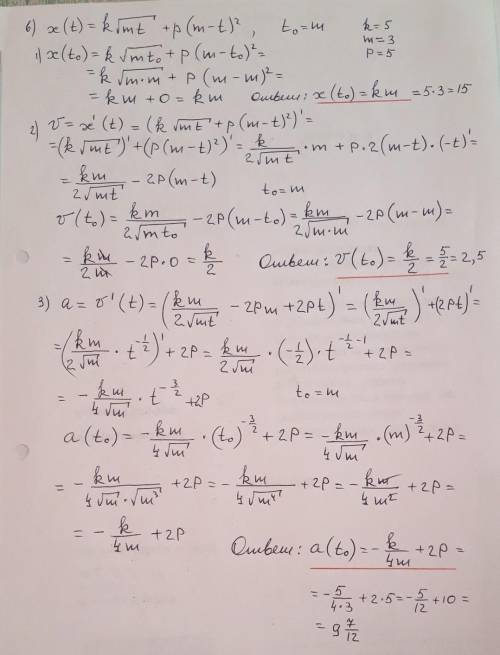 6) x(t) = k√mt + p(m-t)², t₀ = m k = 5
m = 3
p = 5
1) x(t₀) = k√mt₀ + p(m-t₀)² =
= k√m·m + p(m-m)² =
= km + 0 = km Ответ: x(t₀) = km = 5·3 = 15
2) v = x'(t) = (k√mt + p(m-t)²)' =
= (k√mt)' + (p(m-t)²)' = k/(2√mt) · m + p·2(m-t)·(-t)' =
= km/(2√mt) - 2p(m-t) t₀ = m
v(t₀) = km/(2√mt₀) - 2p(m-t₀) = km/(2√m·m) - 2p(m-m) =
= km/2m - 2p·0 = k/2 Ответ: v(t₀) = k/2 = 5/2 = 2,5
3) a = v'(t) = (km/(2√mt) - 2pm + 2pt)' = (km/(2√mt))' + (2pt)' =
= (km/(2√m) · t^(-1/2))' + 2p = km/(2√m) · (-1/2) · t^(-1/2-1) + 2p =
= - km/(4√m) · t^(-3/2) + 2p t₀ = m
a(t₀) = - km/(4√m) · (t₀)^(-3/2) + 2p = - km/(4√m) · (m)^(-3/2) + 2p =
= - km/(4√m·√m³) + 2p = - km/(4√m⁴) + 2p = - km/4m² + 2p =
= - k/4m + 2p
Ответ: a(t₀) = - k/4m + 2p =
= - 5/(4·3) + 2·5 = - 5/12 + 10 =
= 9 7/12